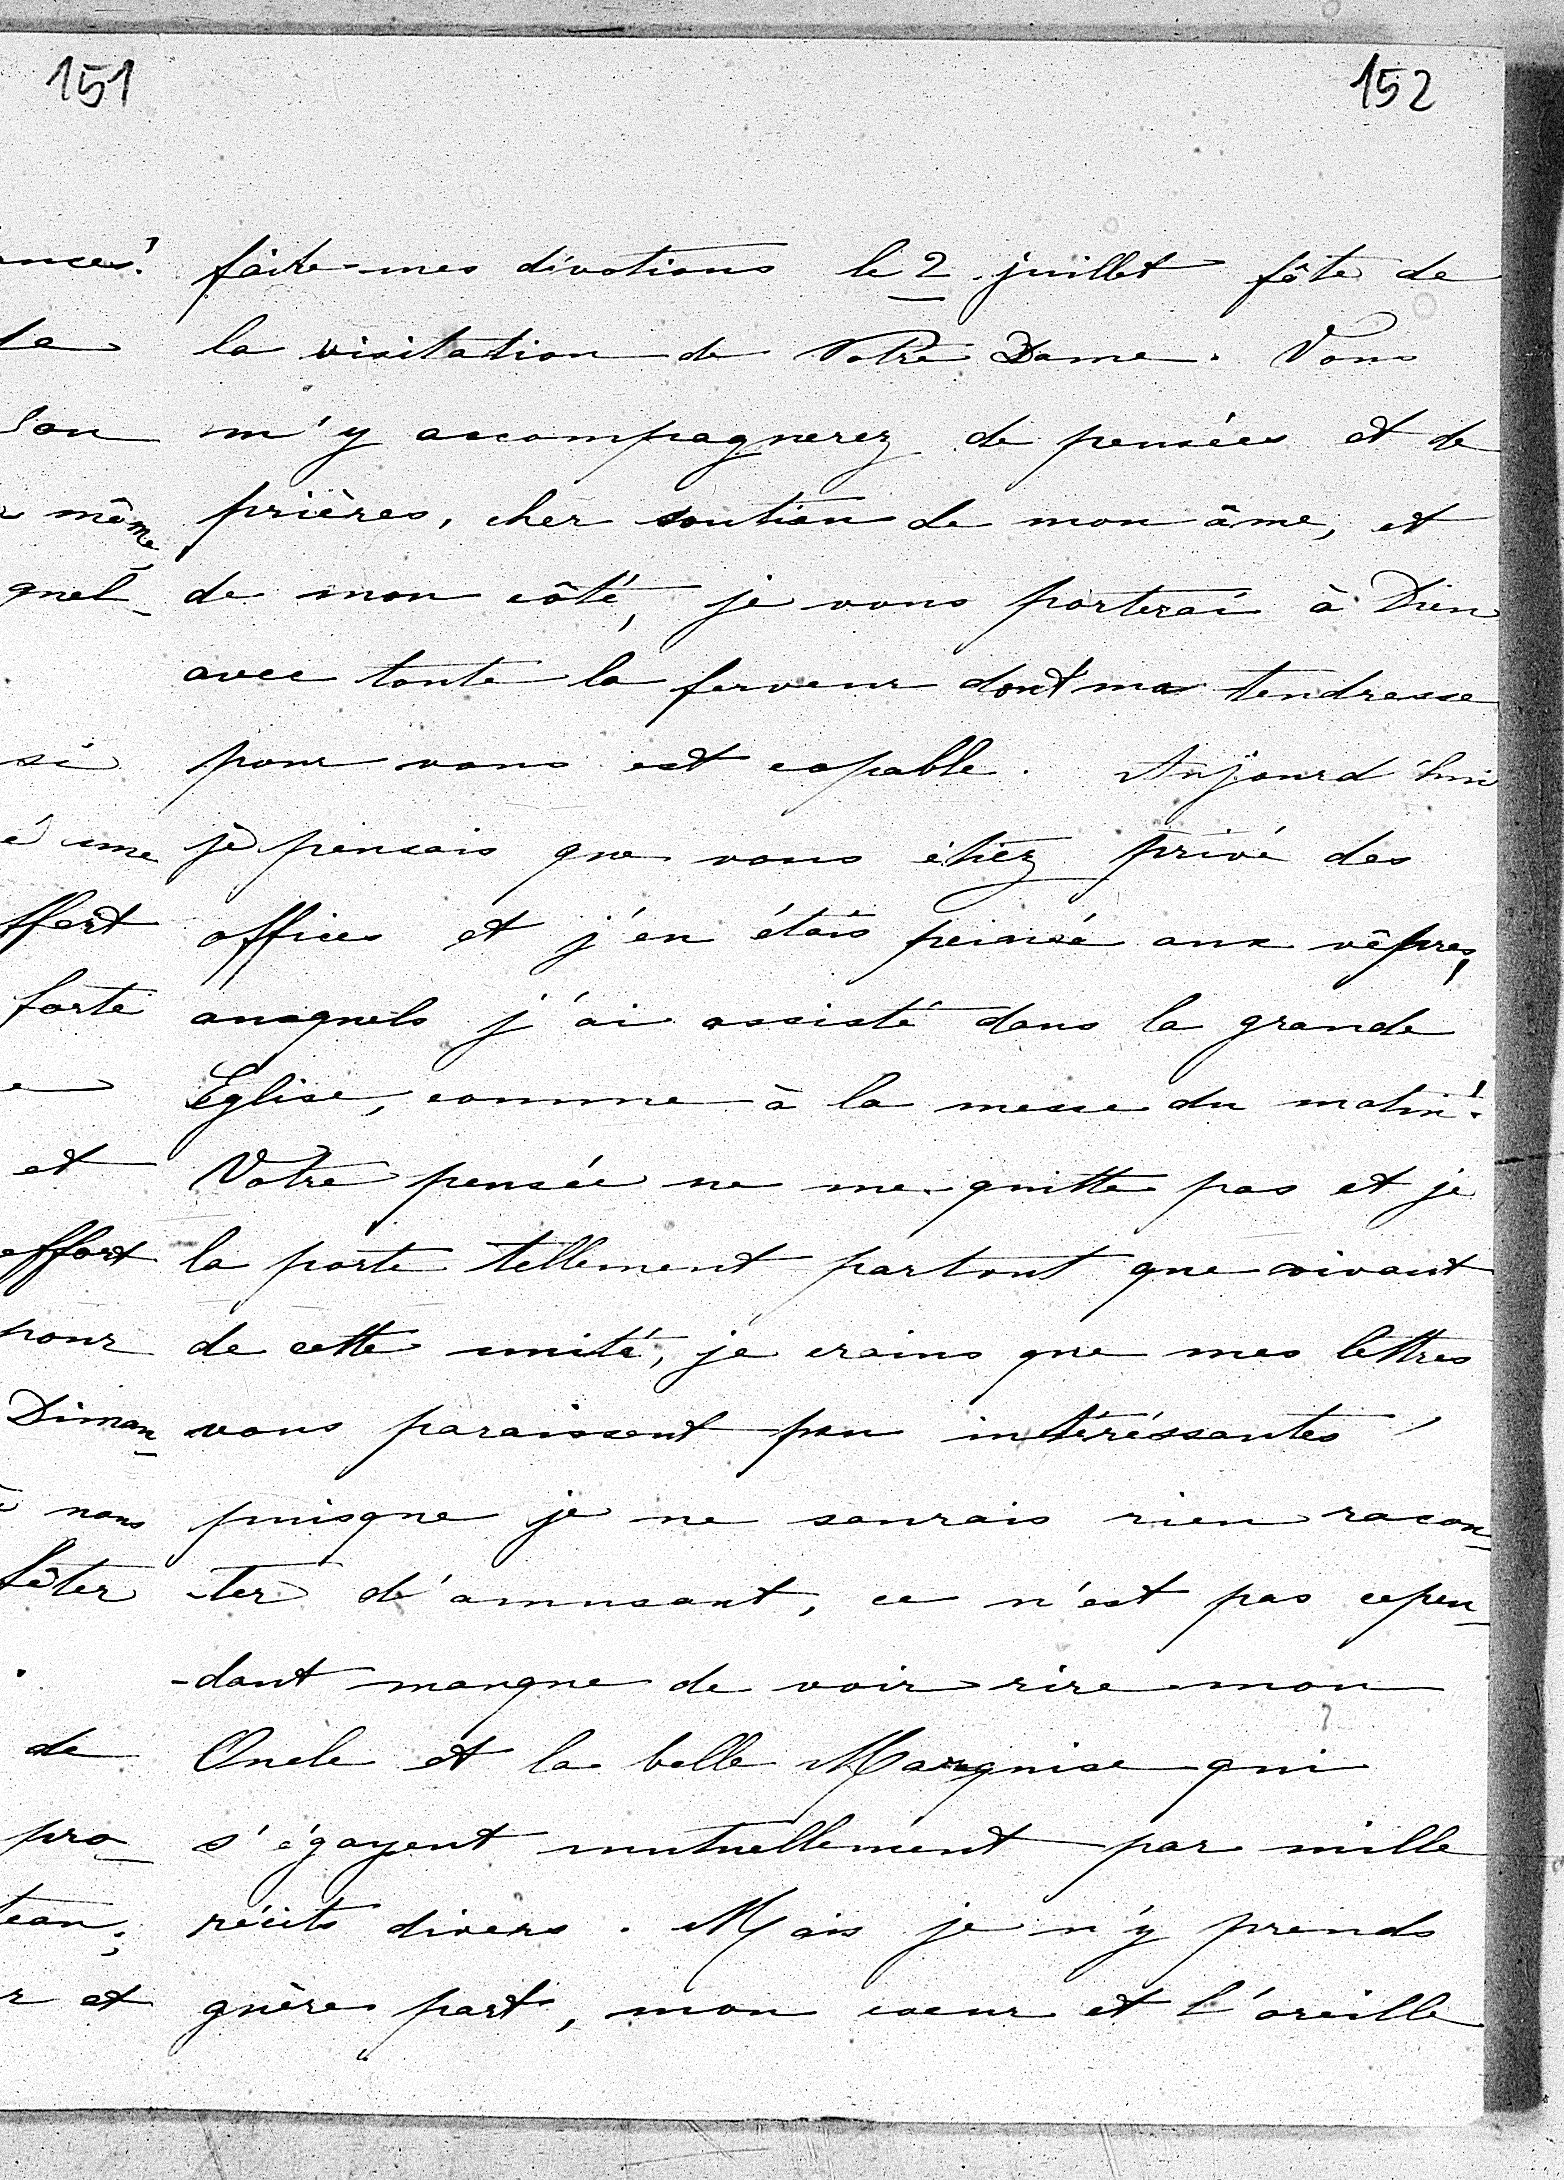 151
152
ances!
te
son
même,
quel-
si
é une
ffert
forte
e
et
effort
pour
Diman-
nous
fêter
de
pro-
teau;
r et
faire mes dévotions le 2 juillet fête de
la visitation de Notre Dame. Vous
m'y accompagnerez de pensées et de
prières, cher soutien de mon âme, et
de mon côté, je vous porterai à Dieu
avec toute la ferveur dont ma tendresse
pour vous est capable. Aujourd'hui
je pensais que vous étiez privé des
offices et j'en étais peinée aux vêpres,
auxquels j'ai assisté dans la grande
Eglise, comme à la messe du matin!
Votre pensée ne me quitte pas et je
la porte tellement partout que vivant
de cette unité, je crains que mes lettres
vous paraissent peu intéressantes,
puisque je ne saurais rien racon-
-ter d'amusant, ce n'est pas cepen-
-dant manque de voir rire mon
Oncle et la belle Marquise qui
s'égayent mutuellement par mille
récits divers. Mais je n'y prends
guère part, mon coeur et l'oreille